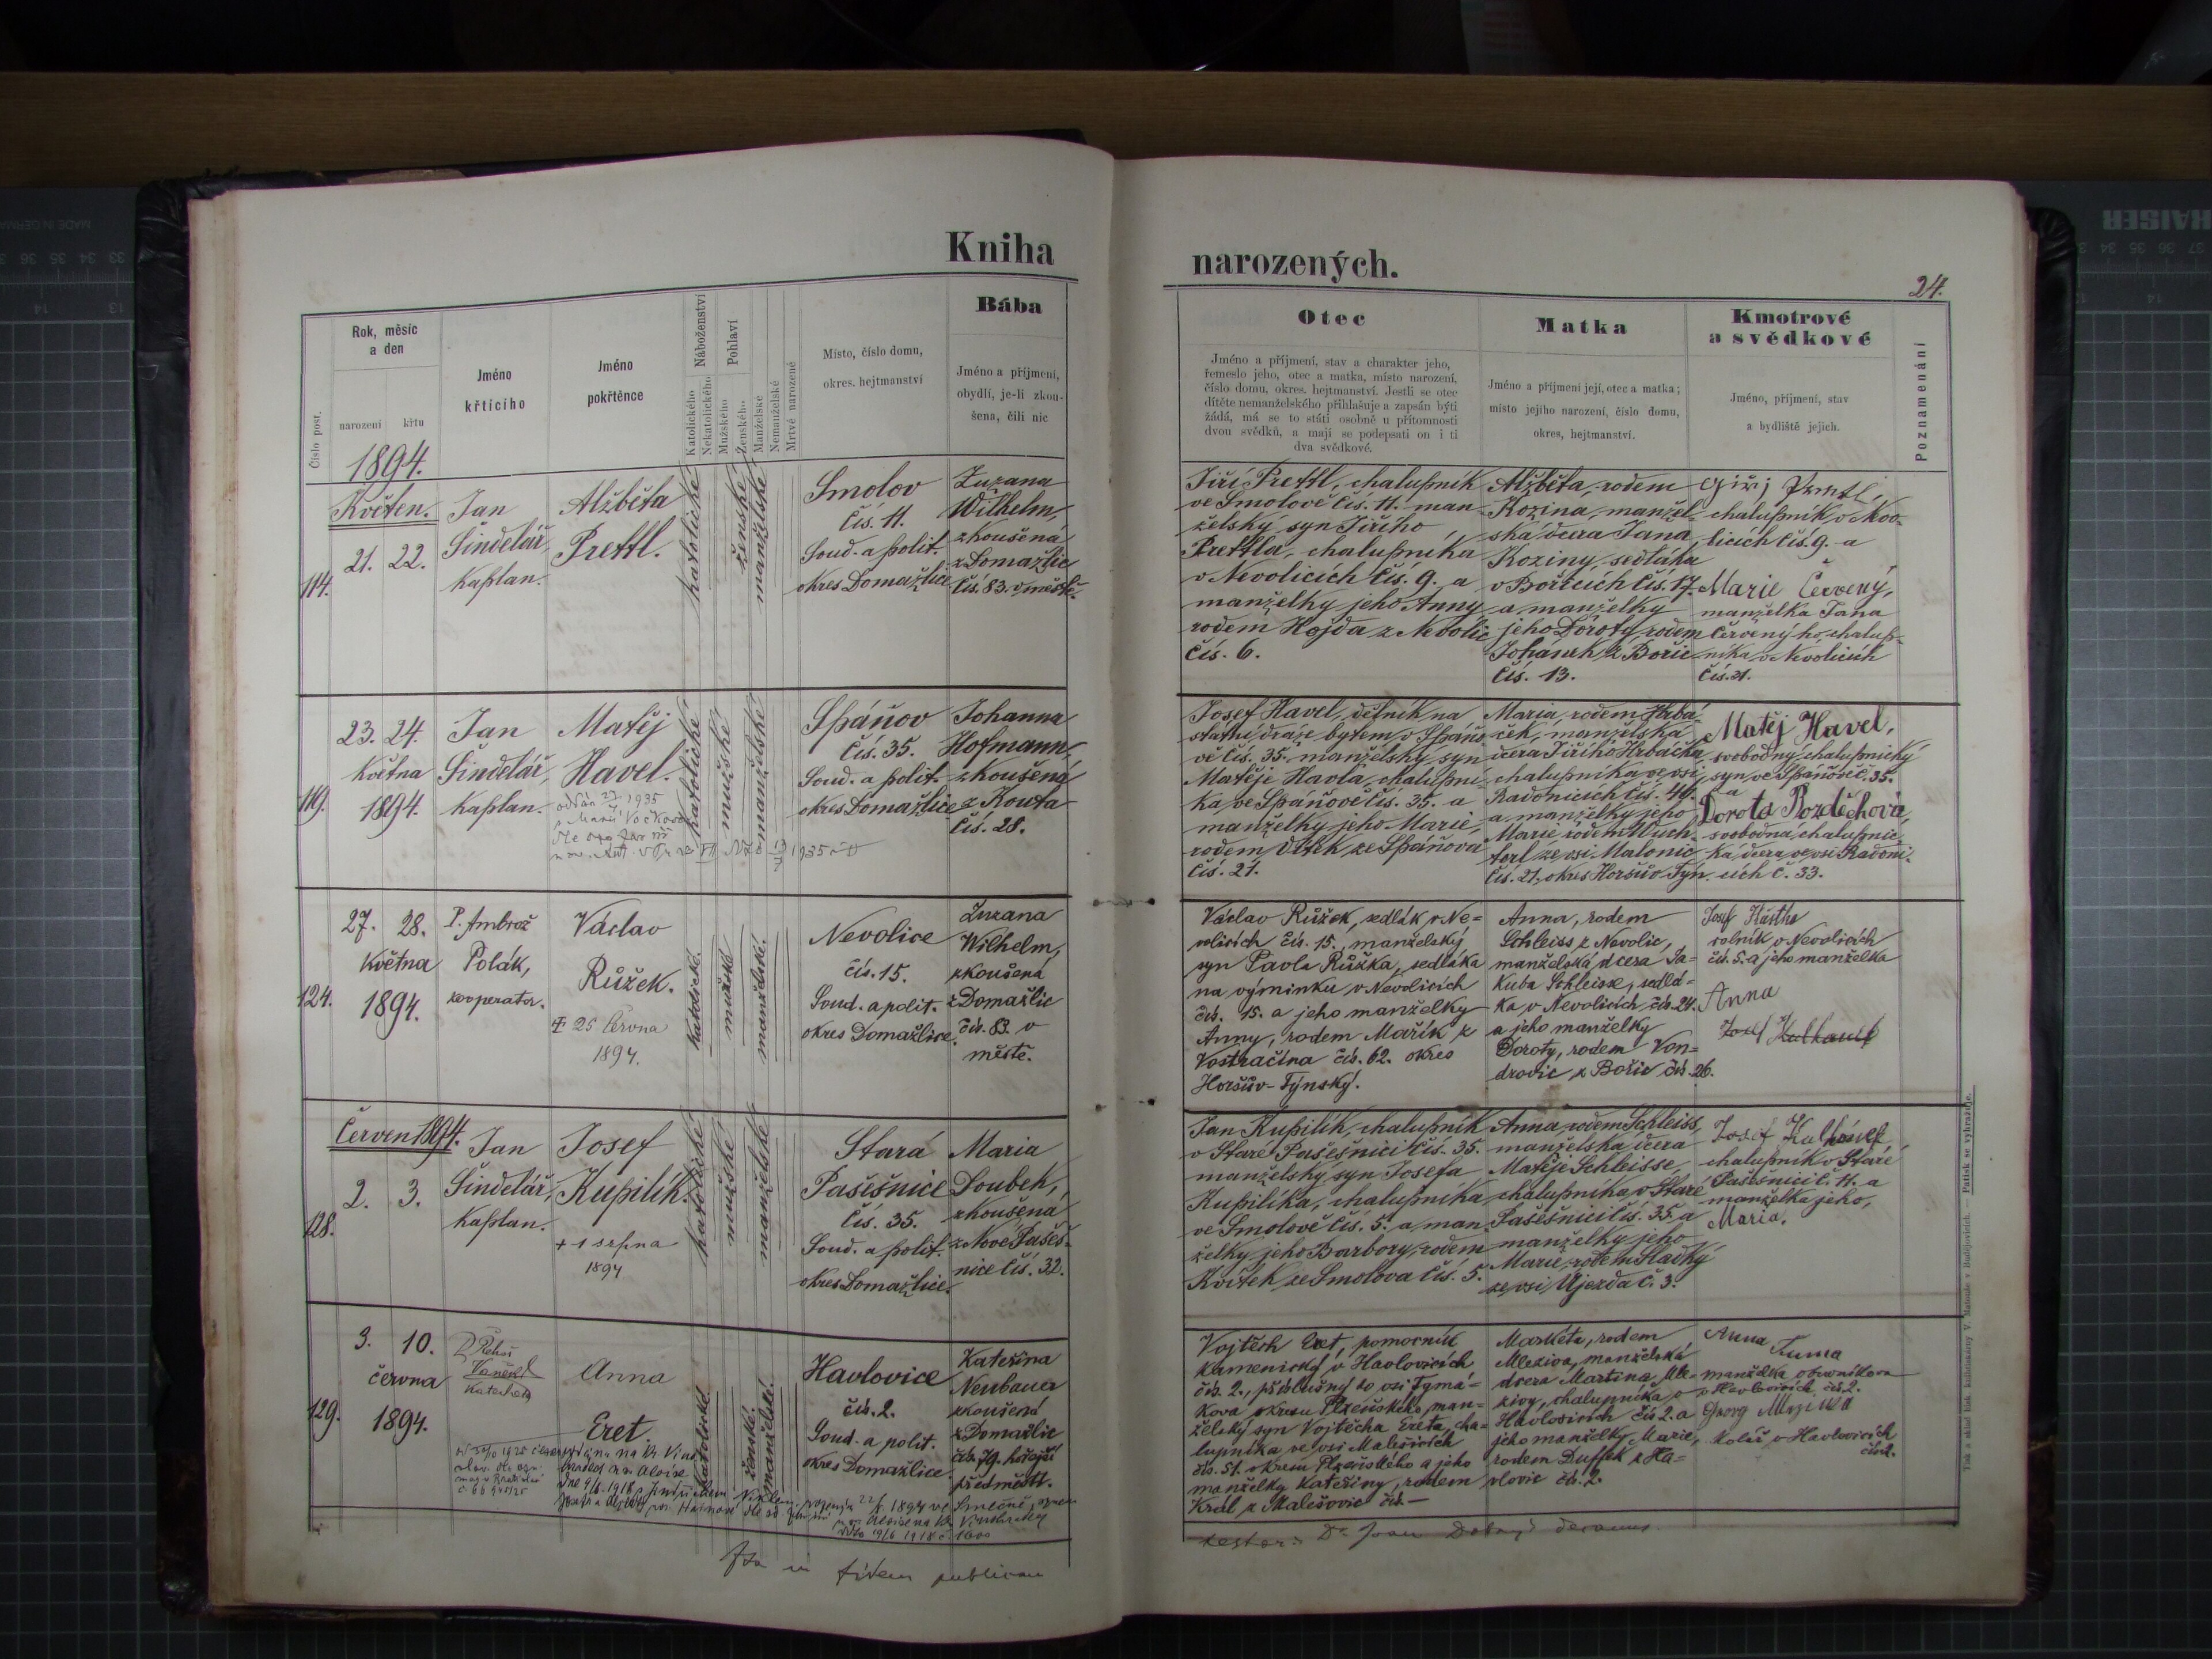 Kniha
narozených.
24.
Číslo post.
Rok, měsíc
a den
narození
křtu
1894.
Jméno
křticího
Jméno
pokřtěnce
Náboženství
Katolického
Nekatolického
Pohlaví
Mužského
Ženského
Manželské
Nemanželské
Mrtvě narozené
Místo, číslo domu,
okres. hejtmanství
Bába
Jméno a příjmení,
obydlí, je-li zkou-
šena, čili nic
Otec
Jméno a příjmení, stav a charakter jeho,
řemeslo jeho, otec a matka, místo narození,
číslo domu, okres. hejtmanství. Jestli se otec
dítěte nemanželského přihlašuje a zapsán býti
žádá, má se to státi osobně u přítomnosti
dvou svědků, a mají se podepsati on i ti
dva svědkové.
Matka
Jméno a příjmení její, otec a matka;
místo jejího narození, číslo domu,
okres, hejtmanství.
Kmotrové
a svědkové
Jméno, příjmení, stav
a bydliště jejich.
Poznamenání
114.
Květen.
21. 22.
Jan
Šindelář,
kaplan.
Alžběta
Prettl.
katolické
ženské
manželské
Smolov
čís. 11.
Soud. a polit.
okres Domažlice
Zuzana
Wilhelm,
zkoušená
z Domažlic
čís. 83. v městě.
Jiří Prettl, chalupník
ve Smolově čís. 11. man
želský syn Jiřího
Prettla, chalupníka
v Nevolicích čís. 9. a
manželky jeho Anny
rodem Hojda z Nevolic
čís. 6.
Alžběta, rodem
Kozina, manžel-
ská dcera Jana
Koziny, sedláka
v Bořicích čís. 17.
a manželky
jeho Doroty, rodem
Johánek z Bořic
čís. 13.
chalupník v Nevo-
licích čís. 9. a
Marie Červený,
manželka Jana
Červenýho, chalup-
níka v Nevolicích
čís. 21.
119.
23. 24.
Května
1894.
Jan
Šindelář,
kaplan.
Matěj
Havel.
katolické
mužské
manželské
Spáňov
čís. 35.
Soud. a polit.
okres Domažlice
Johanna
Hofmann,
zkoušená
z Kouta
čís. 28.
Josef Havel, dělník na
státní dráze bytem v Spáňo
vě čís. 35. manželský syn
Matěje Havla, chalupní-
ka, ve Spáňově čís. 35. a
manželky jeho Marie,
rodem Vítek ze Spáňova
čís. 21.
Maria, rodem Hrbá-
ček, manželská
dcera Jiřího Hrbáčka,
chalupníka ve vsi
Radonicích čís. 40.
a manželky jeho
Marie rodem
ze vsi Malonic
čís. 21. okres Horšův Týn.
Matěj Havel,
svobodný chalupnický
syn ve Spáňově č. 35.
a
Dorota Pozděchová,
svobodná chalupnic
ká dcera ve vsi Radoni-
cích č. 33.
124.
27. 28.
Května
1894.
P. Ambrož
Polák,
kooperator.
Václav
Růžek.
25 června
1894.
katolické.
mužské
manželské.
Nevolice
čís. 15.
Soud. a polit.
okres Domažlice.
Zuzana
Wilhelm,
zkoušená
z Domažlic
čís. 83. v
městě.
Václav Růžek, sedlák v Ne-
volicích čís. 15., manželský
syn Pavla Růžka, sedláka
na výminku v Nevolicích
čís. 15. a jeho manželky
Anny, rodem Mařík z
Vostračína čís. 62. okres
Horšův-Týnský.
Anna, rodem
Schleiss z Nevolic,
manželská dcera Ja-
kuba Schleisse, sedlá-
ka v Nevolicích čís. 24.
a jeho manželky
Doroty, rodem Von-
drovic z Bořic čís. 26.
rolník v Nevolicích
čís. 5. a jeho manželka
Anna
128.
Červen 1894.
2. 3.
Jan
Šindelář,
kaplan.
Josef
Kupilík.
+ 1 srpna
1894
katolické
mužské
manželské
Stará
Pašešnice
čís. 35.
Soud. a polit.
okres Domažlice.
Maria
Doubek,
zkoušená
z Nové Pašeš-
nice čís. 32.
Jan Kupilík, chalupník
v Staré Pašešnici čís. 35.
manželský syn Josefa
Kupilíka, chalupníka
ve Smolově čís. 5. a man
želky jeho Barbory, rodem
Květek ze Smolova čís. 5.
Anna, rodem Schleiss,
manželská dcera
Matěje Schleisse,
chalupníka v Staré
Pašešnici čís. 35. a
manželky jeho
Marie, rodem Sladký
ze vsi Újezda č. 3.
chalupník v Staré
Pašešnici č. 11. a
manželka jeho,
Maria.
129.
3. 10.
června
1894.
Anna
Eret.
katolické
ženské.
manželské.
Havlovice
čís. 2.
Soud. a polit.
okres Domažlice.
Kateřina
Neubauer
zkoušená
z Domažlic
čís. 79. hořejší
předměstí.
Vojtěch Eret, pomocník
kamenický v Havlovicích
čís. 2., příslušný do vsi Tymá-
kova okresu Plzeňského, man-
želský syn Vojtěcha Ereta, cha-
lupníka ve vsi Malešicích
čís. 51. okresu Plzeňského a jeho
manželky Kateřiny, rodem
Král z Malešovic čís. —
Markéta, rodem
Mleziva, manželská
dcera Martina Mle-
zivy, chalupníka v
Havlovicích čís. 2. a
jeho manželky Marie,
rodem Duffek z Ha-
vlovic čís. 2.
Anna Tuma
manželka obuvníkova
v Havlovicích, čís. 2.
Georg
kolář v Havlovicích
čís. 2.
Ita in fidem publicam
Tisk a sklad tisk. knihtiskárny V. Matouše v Budějovicích. — Patisk se vyhražuje.